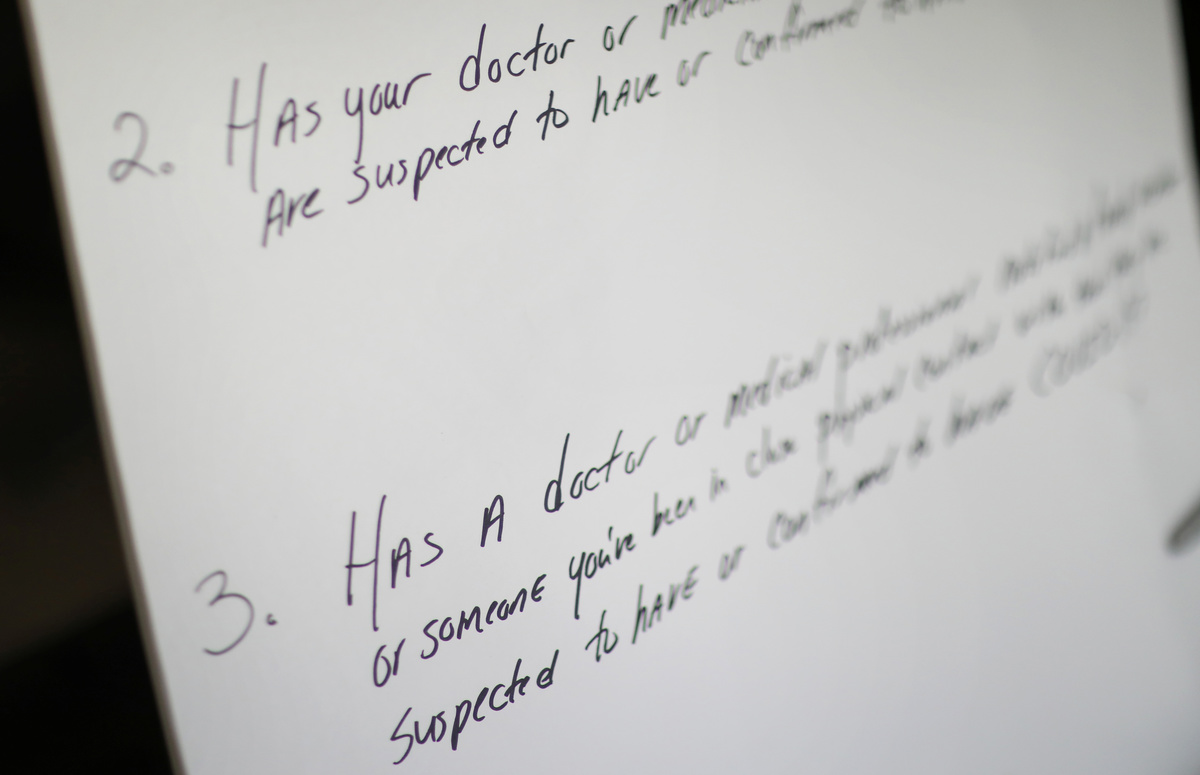 2. Has your doctor or
Are suspected to have or confirmed
3. Has A doctor or medical professional
or someone you've been in close physical contact with
suspected to have or confirmed to